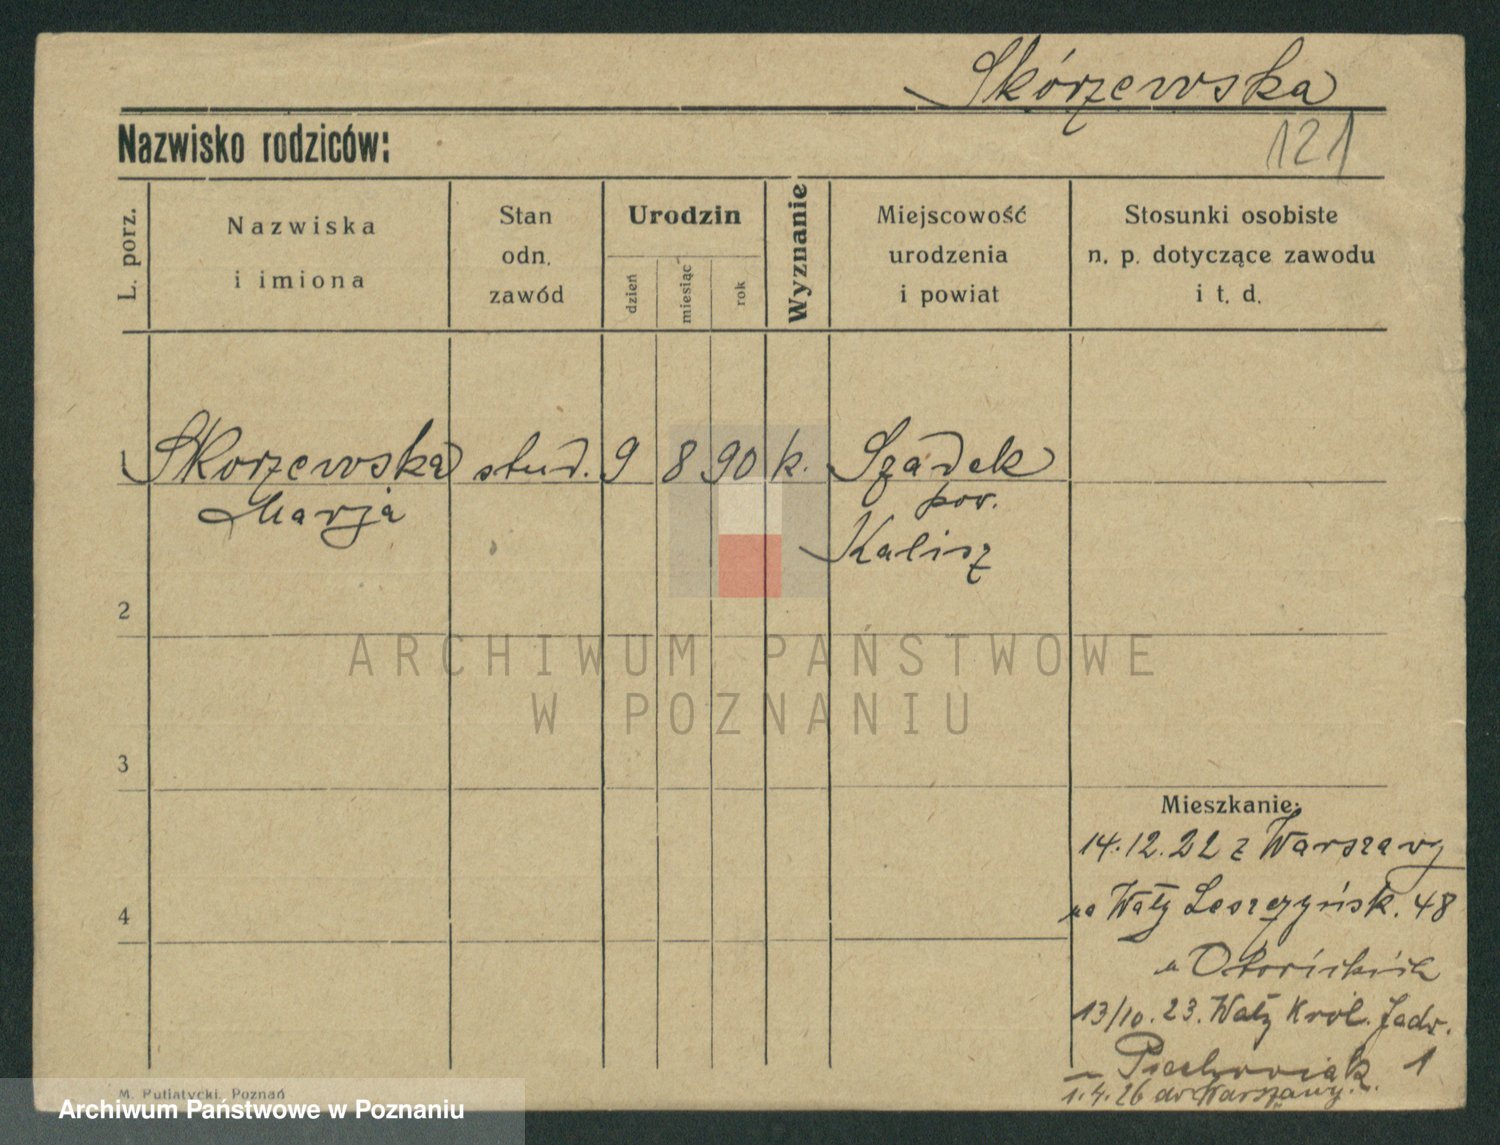 Skórzewska
Nazwisko rodziców:
121
L. porz.
Nazwiska
i imiona
Stan
odn.
zawód
Urodzin
dzień
miesiąc
rok
Wyznanie
Miejscowość
urodzenia
i powiat
Stosunki osobiste
n. p. dotyczące zawodu
i t. d.
1 Skorzewska stud. 9 8 90 k. Szadek
Marja pow.
Kalisz
2
ARCHIWUM PAŃSTWOWE
W POZNANIU
3
Mieszkanie:
14.12.22 z Warszawy
na Wały Leszczyńsk. 48
4
u
13/10.23. Wały Król. Jadw.
Piechowiak 1
1.4.26 do Warszawy.
M. Putiatycki, Poznań
Archiwum Państwowe w Poznaniu